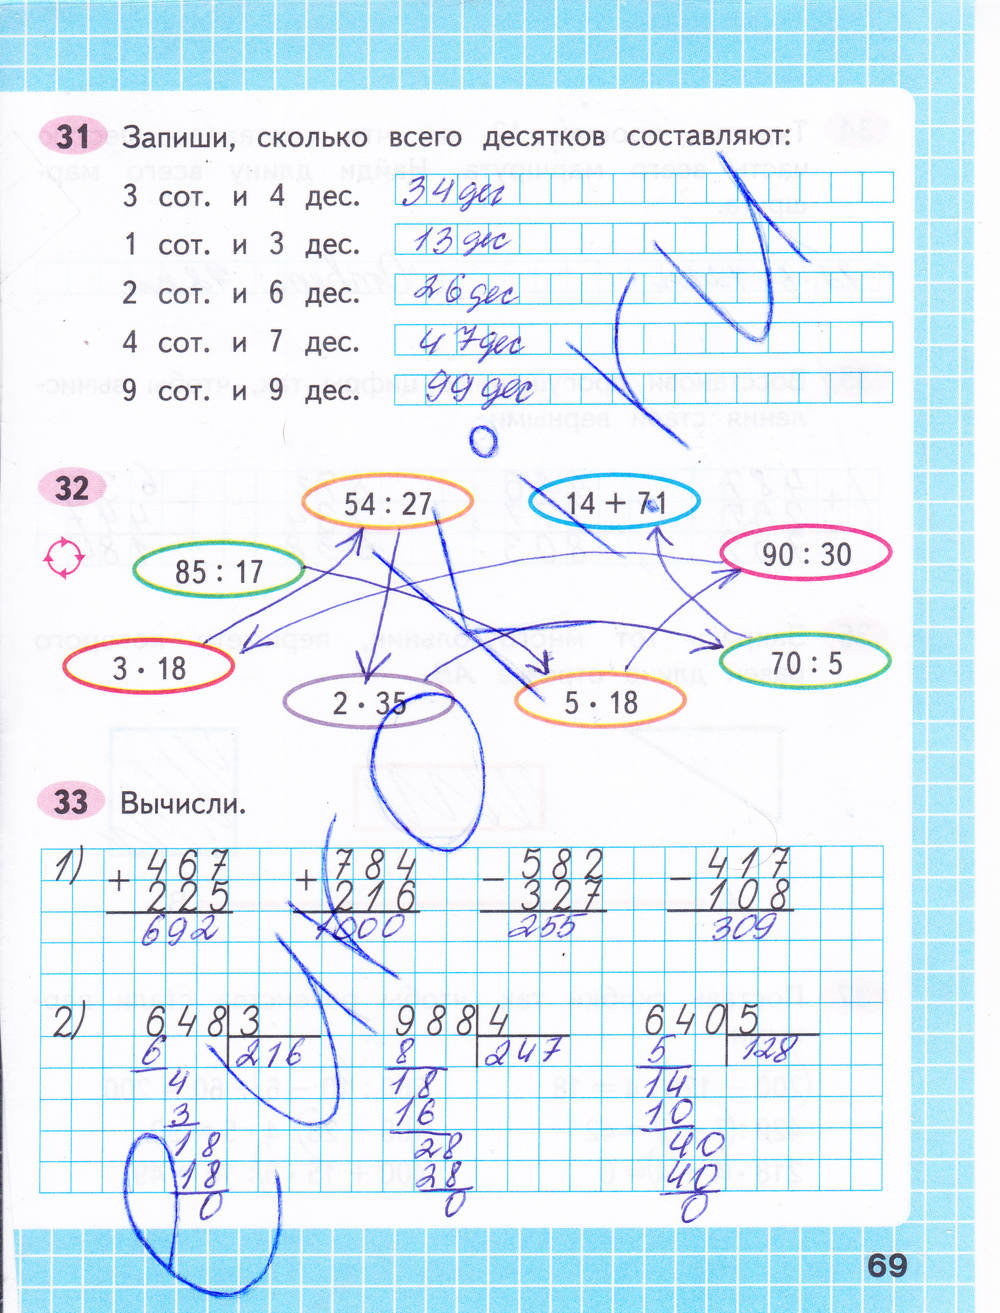 31 Запиши, сколько всего десятков составляют:
3 сот. и 4 дес. 34 дес
1 сот. и 3 дес. 13 дес
2 сот. и 6 дес. 26 дес
4 сот. и 7 дес. 47 дес
9 сот. и 9 дес. 99 дес
32
54 : 27 14 + 71
85 : 17 90 : 30
3 · 18 70 : 5
2 · 35 5 · 18
33 Вычисли.
1) 467 784 582 417
+ 225 + 216 − 327 − 108
692 1000 255 309
2) 648 3 988 4 640 5
6 216 8 247 5 128
4 18 14
3 16 10
18 28 40
18 28 40
0 0 0
69